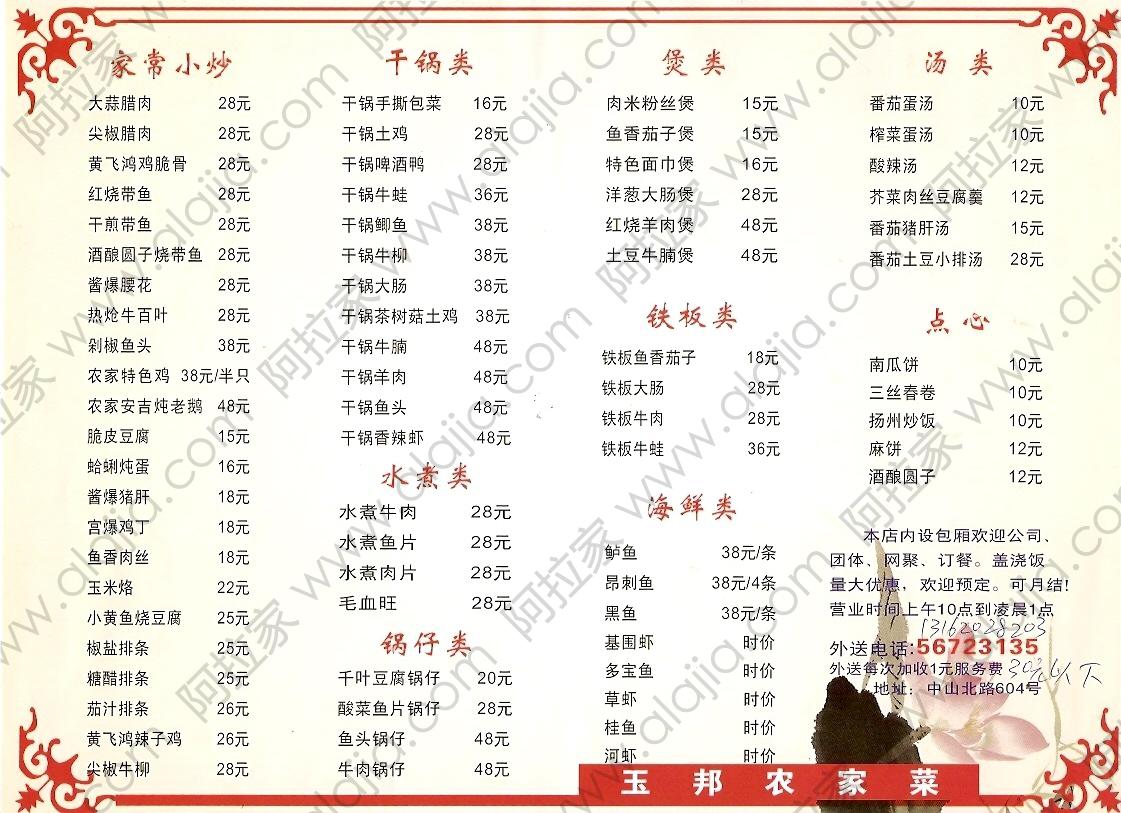 家常小炒
大蒜腊肉 28元
尖椒腊肉 28元
黄飞鸿鸡脆骨 28元
红烧带鱼 28元
干煎带鱼 28元
酒酿圆子烧带鱼 28元
酱爆腰花 28元
热炝牛百叶 28元
剁椒鱼头 38元
农家特色鸡 38元/半只
农家安吉炖老鹅 48元
脆皮豆腐 15元
蛤蜊炖蛋 16元
酱爆猪肝 18元
宫爆鸡丁 18元
鱼香肉丝 18元
玉米烙 22元
小黄鱼烧豆腐 25元
椒盐排条 25元
糖醋排条 25元
茄汁排条 26元
黄飞鸿辣子鸡 26元
尖椒牛柳 28元
干锅类
干锅手撕包菜 16元
干锅土鸡 28元
干锅啤酒鸭 28元
干锅牛蛙 36元
干锅鲫鱼 38元
干锅牛柳 38元
干锅大肠 38元
干锅茶树菇土鸡 38元
干锅牛腩 48元
干锅羊肉 48元
干锅鱼头 48元
干锅香辣虾 48元
水煮类
水煮牛肉 28元
水煮鱼片 28元
水煮肉片 28元
毛血旺 28元
锅仔类
千叶豆腐锅仔 20元
酸菜鱼片锅仔 28元
鱼头锅仔 48元
牛肉锅仔 48元
煲类
肉米粉丝煲 15元
鱼香茄子煲 15元
特色面巾煲 16元
洋葱大肠煲 28元
红烧羊肉煲 48元
土豆牛腩煲 48元
铁板类
铁板鱼香茄子 18元
铁板大肠 28元
铁板牛肉 28元
铁板牛蛙 36元
海鲜类
鲈鱼 38元/条
昂刺鱼 38元/4条
黑鱼 38元/条
基围虾 时价
多宝鱼 时价
草虾 时价
桂鱼 时价
河虾 时价
汤类
番茄蛋汤 10元
榨菜蛋汤 10元
酸辣汤 12元
芥菜肉丝豆腐羹 12元
番茄猪肝汤 15元
番茄土豆小排汤 28元
点心
南瓜饼 10元
三丝春卷 10元
扬州炒饭 10元
麻饼 12元
酒酿圆子 12元
本店内设包厢欢迎公司、
团体、网聚、订餐。盖浇饭
量大优惠，欢迎预定。可月结!
营业时间上午10点到凌晨1点
13162028203
外送电话:56723135
外送每次加收1元服务费 30元以下
地址：中山北路604号
玉邦农家菜
阿拉家 www.alajia.com